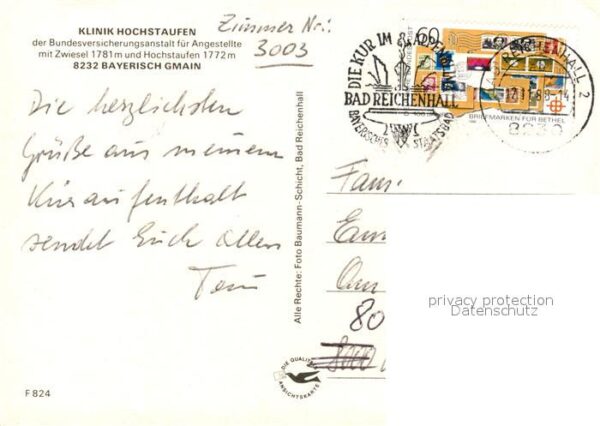 KLINIK HOCHSTAUFEN
der Bundesversicherungsanstalt für Angestellte
mit Zwiesel 1781 m und Hochstaufen 1772 m
8232 BAYERISCH GMAIN
Zimmer Nr.:
3003
Die herzlichsten
Grüße aus meinem
Kuraufenthalt
sendet Euch allen
Toni
F 824
Alle Rechte: Foto Baumann-Schicht, Bad Reichenhall
DIE QUALITÄTS
ANSICHTSKARTE
DIE KUR IM ALPEN
BAD REICHENHALL
BAYERISCHES STAATSBAD
60
BRIEFMARKEN FÜR BETHEL
REICHENHALL 2
8230
Fam.
80
8000
privacy protection
Datenschutz